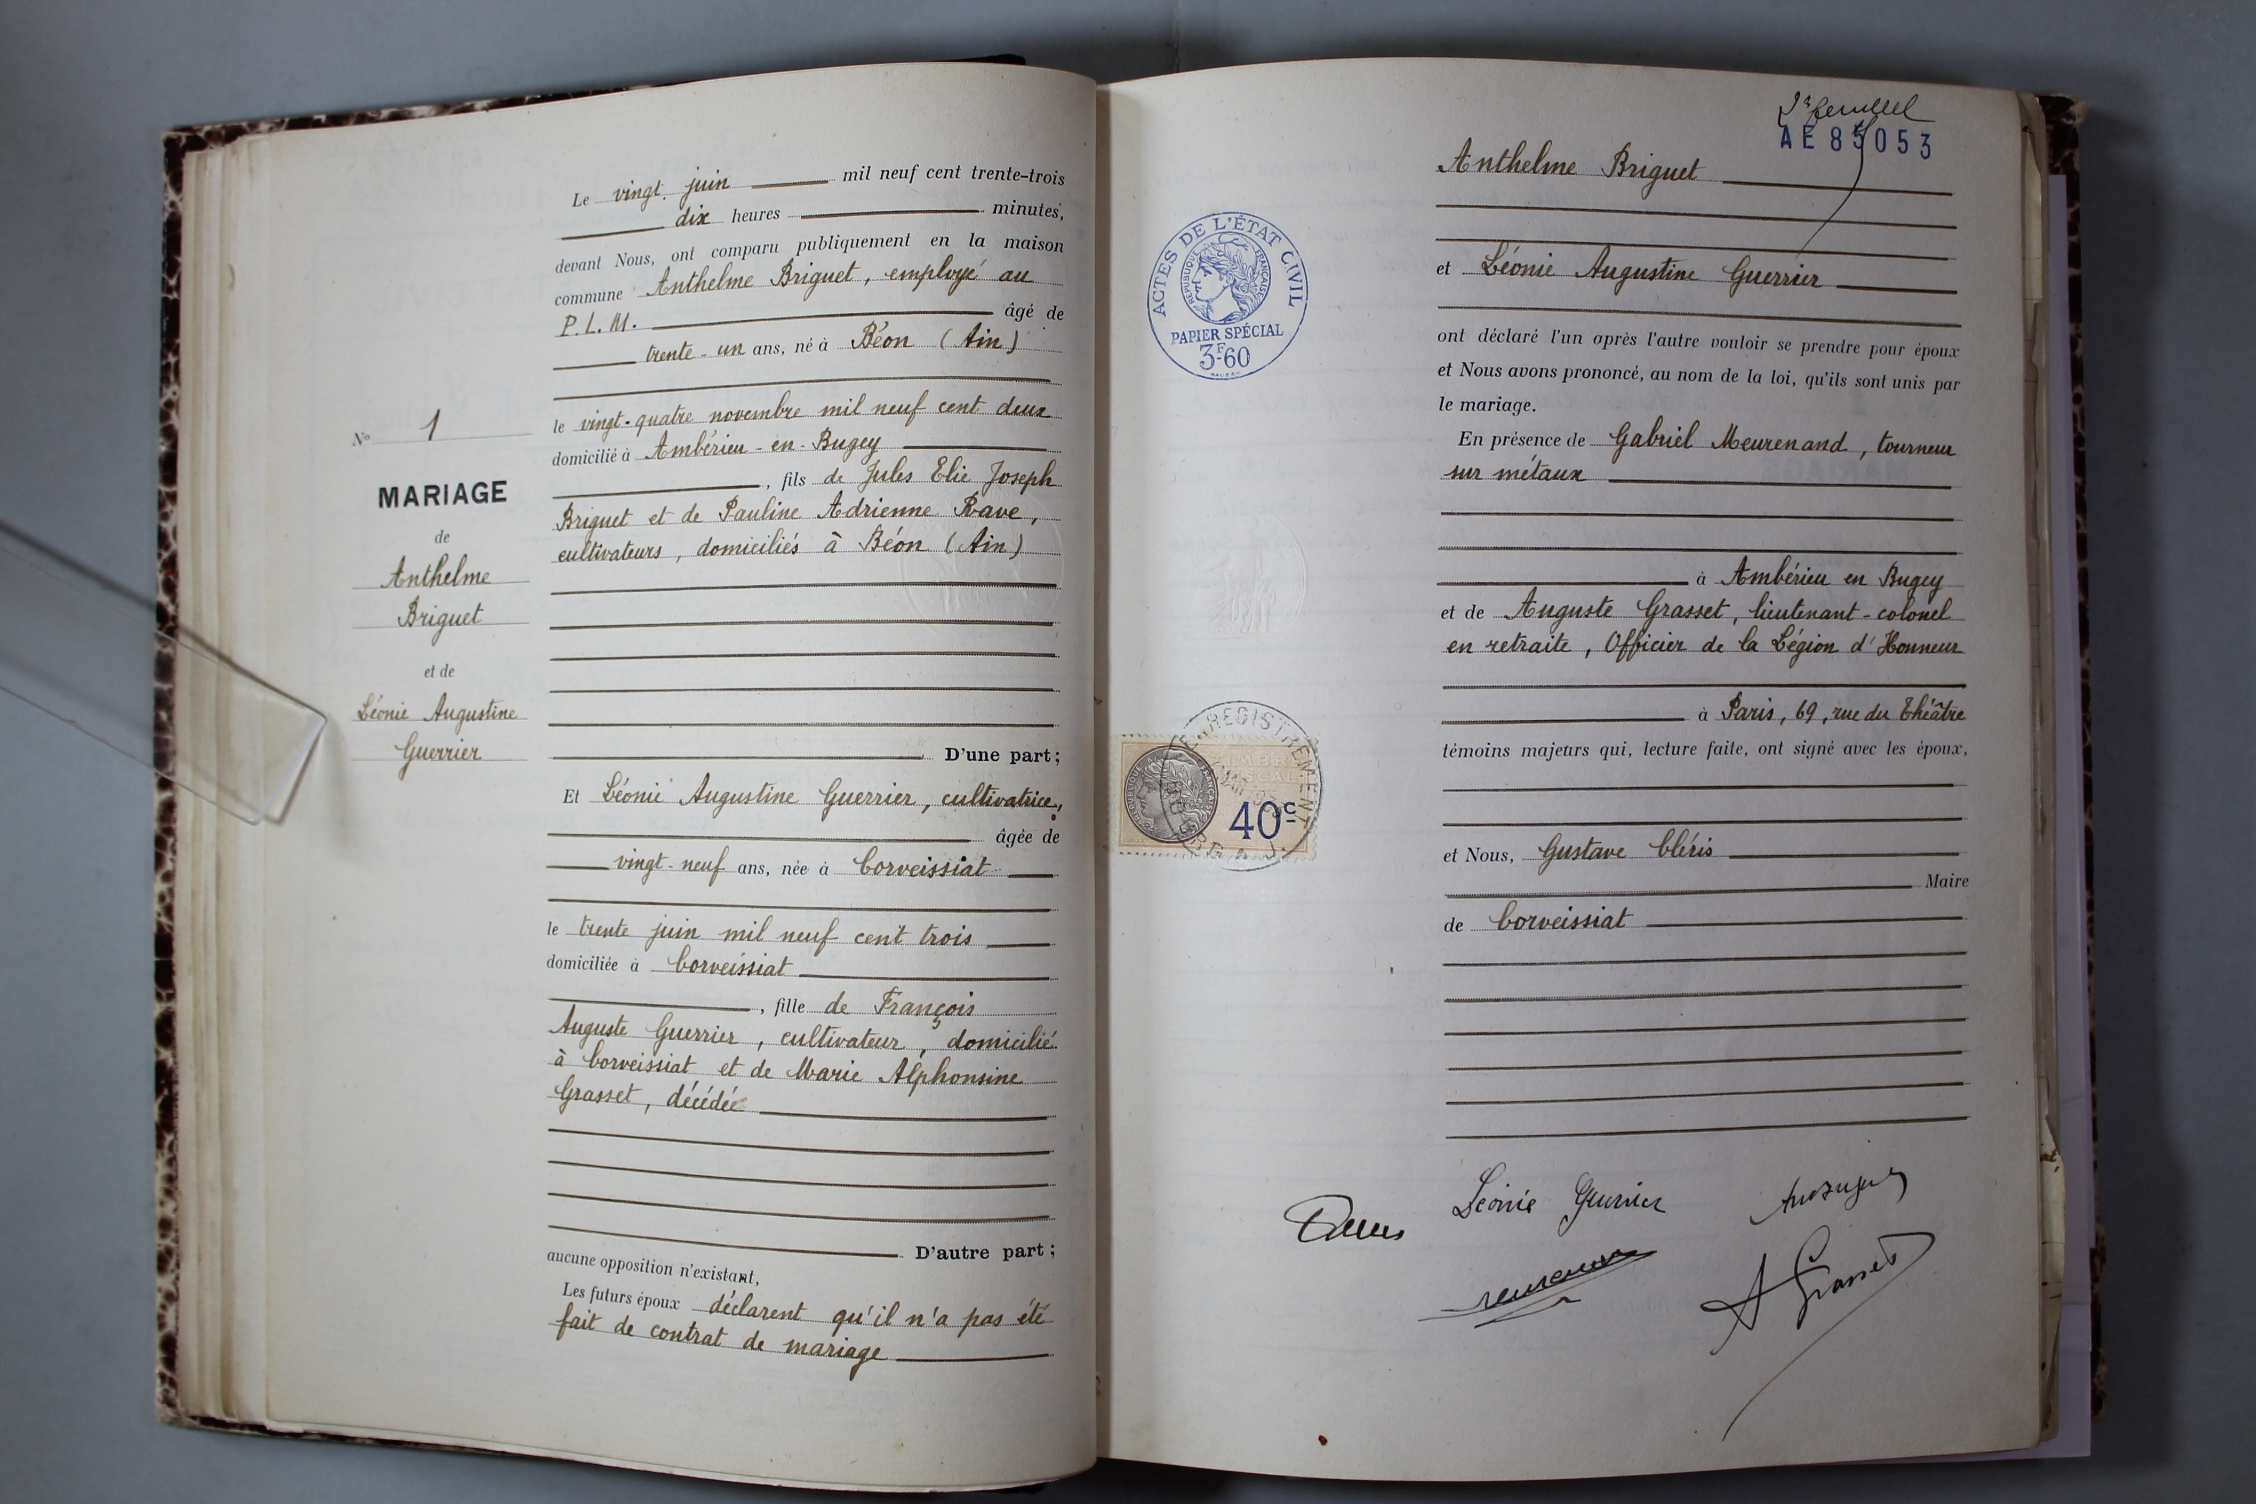 N° 1
MARIAGE
de
Anthelme
Briguet
et de
Léonie Augustine
Guerrier
Le vingt juin mil neuf cent trente-trois
dix heures minutes,
devant Nous, ont comparu publiquement en la maison
commune Anthelme Briguet, employé au
P.L.M. âgé de
trente-un ans, né à Béon (Ain)
le vingt-quatre novembre mil neuf cent deux
domicilié à Ambérieu-en-Bugey
, fils de Jules Elie Joseph
Briguet et de Pauline Adrienne Rave,
cultivateurs, domiciliés à Béon (Ain)
D'une part;
Et Léonie Augustine Guerrier, cultivatrice,
âgée de
vingt-neuf ans, née à Corveissiat
le trente juin mil neuf cent trois
domiciliée à Corveissiat
, fille de François
Auguste Guerrier, cultivateur, domicilié
à Corveissiat et de Marie Alphonsine
Grasset, décédée
D'autre part;
aucune opposition n'existant,
Les futurs époux déclarent qu'il n'a pas été
fait de contrat de mariage
AE 85053
ACTES DE L'ÉTAT CIVIL
RÉPUBLIQUE FRANÇAISE
PAPIER SPÉCIAL
3F60
Anthelme Briguet
et Léonie Augustine Guerrier
ont déclaré l'un après l'autre vouloir se prendre pour époux
et Nous avons prononcé, au nom de la loi, qu'ils sont unis par
le mariage.
En présence de Gabriel Meurenand, tourneur
sur métaux
à Ambérieu en Bugey
et de Auguste Grasset, lieutenant-colonel
en retraite, Officier de la Légion d'Honneur
à Paris, 69, rue du Théâtre
témoins majeurs qui, lecture faite, ont signé avec les époux,
ENREGISTREMENT
TIMBRE
FISCAL
40c
et Nous, Gustave Cléris
Maire
de Corveissiat
Léonie Guerrier
A Grasset